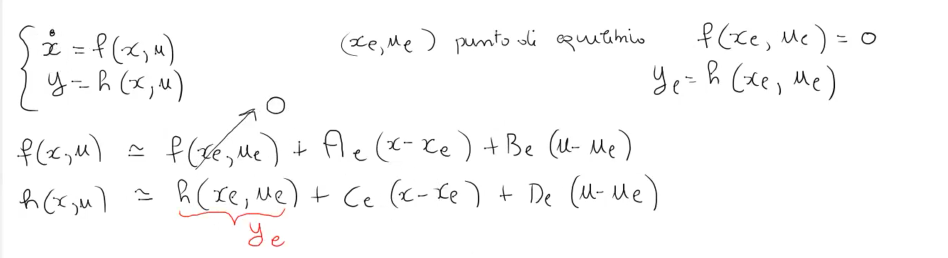 ẋ = f(x,u) (xe,ue) punto di equilibrio f(xe,ue) = 0
y = h(x,u) ye = h(xe,ue)
0
f(x,u) ≃ f(xe,ue) + Ae (x-xe) + Be (u-ue)
h(x,u) ≃ h(xe,ue) + Ce (x-xe) + De (u-ue)
ye